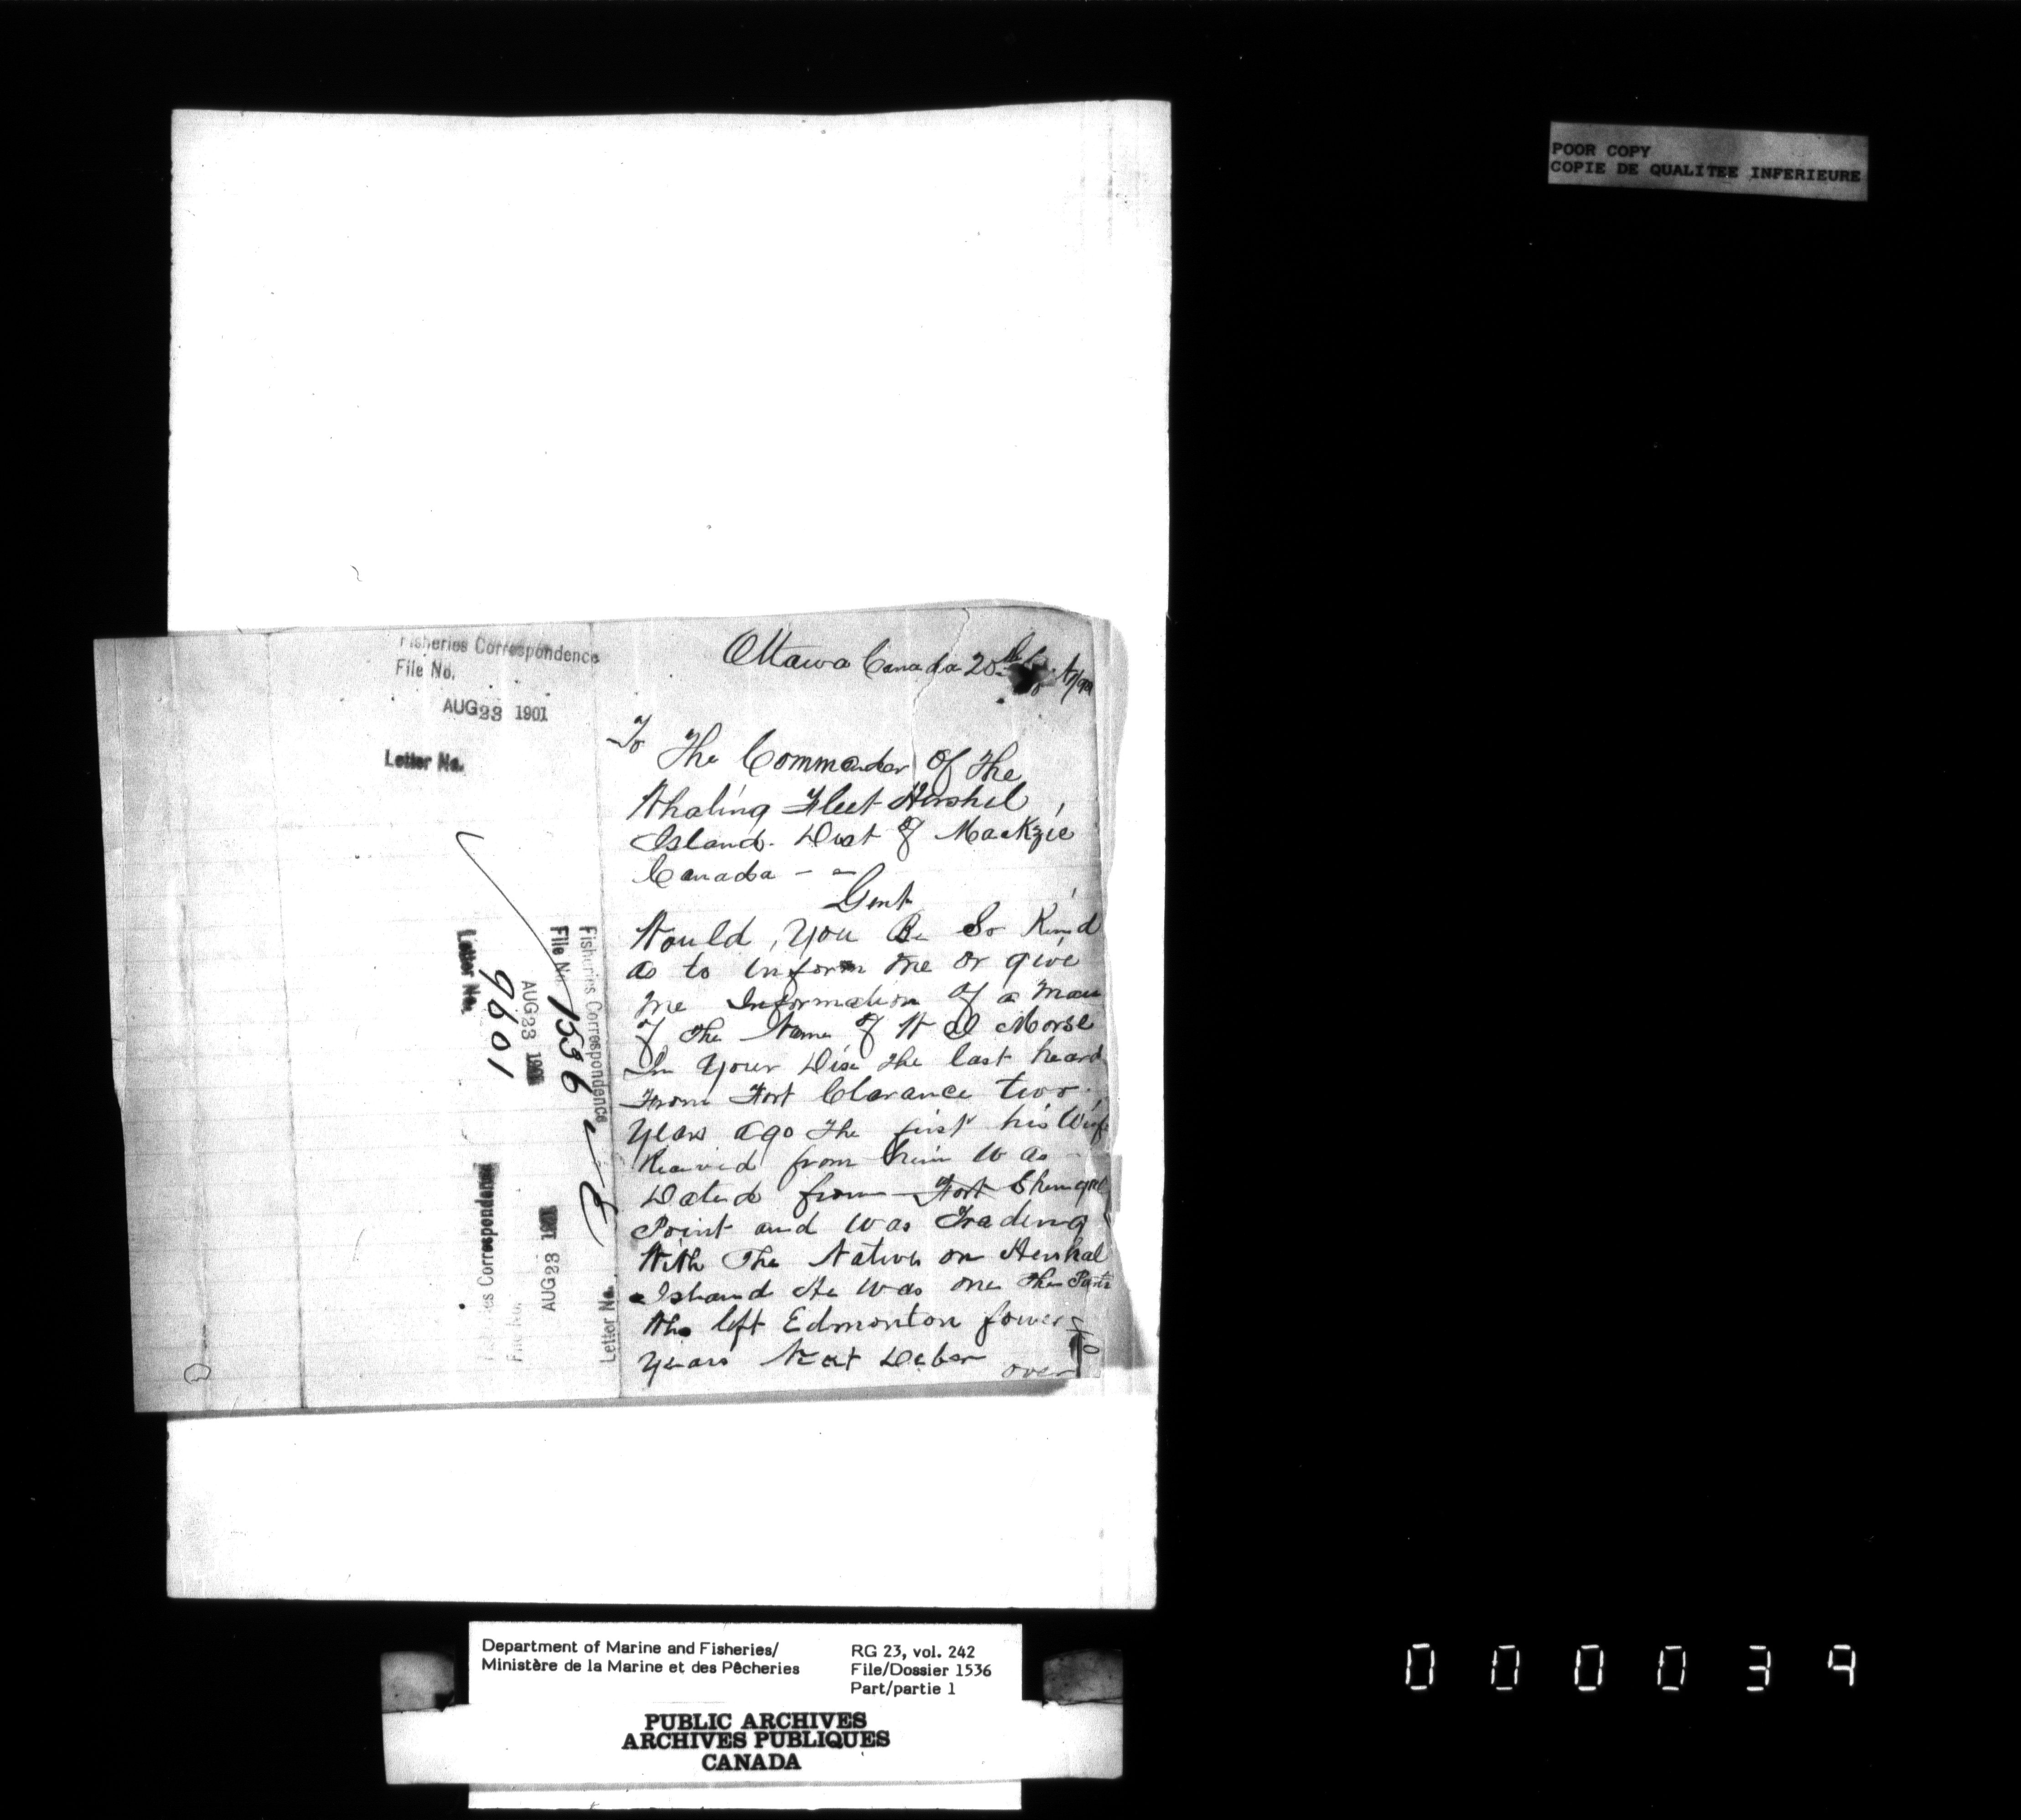 POOR COPY
COPIE DE QUALITEE INFERIEURE
Fisheries Correspondence
File No.
AUG 23 1901
Letter No.
Fisheries Correspondence
File No. 1536
AUG 23 1901
9601
Letter No.
Fisheries Correspondence
File No.
AUG 23 1901
Letter No.
Ottawa Canada 20th
To The Commander Of The
Whaling Fleet Hershel
Island. Dist of MacKzie
Canada - -
Gent
Would, you Be So Kind
as to inform me or give
me Information of a Man
of the Name of W Morse
In your Dis the last heard
From Fort Clarance two
years ago The first his Wife
Received from him was
Dated from Fort
Point and was Trading
With The Natives on Hershal
Island He was one The Party
Who left Edmonton fower
years Next
over
Department of Marine and Fisheries/
Ministère de la Marine et des Pêcheries
RG 23, vol. 242
File/Dossier 1536
Part/partie 1
PUBLIC ARCHIVES
ARCHIVES PUBLIQUES
CANADA
000039